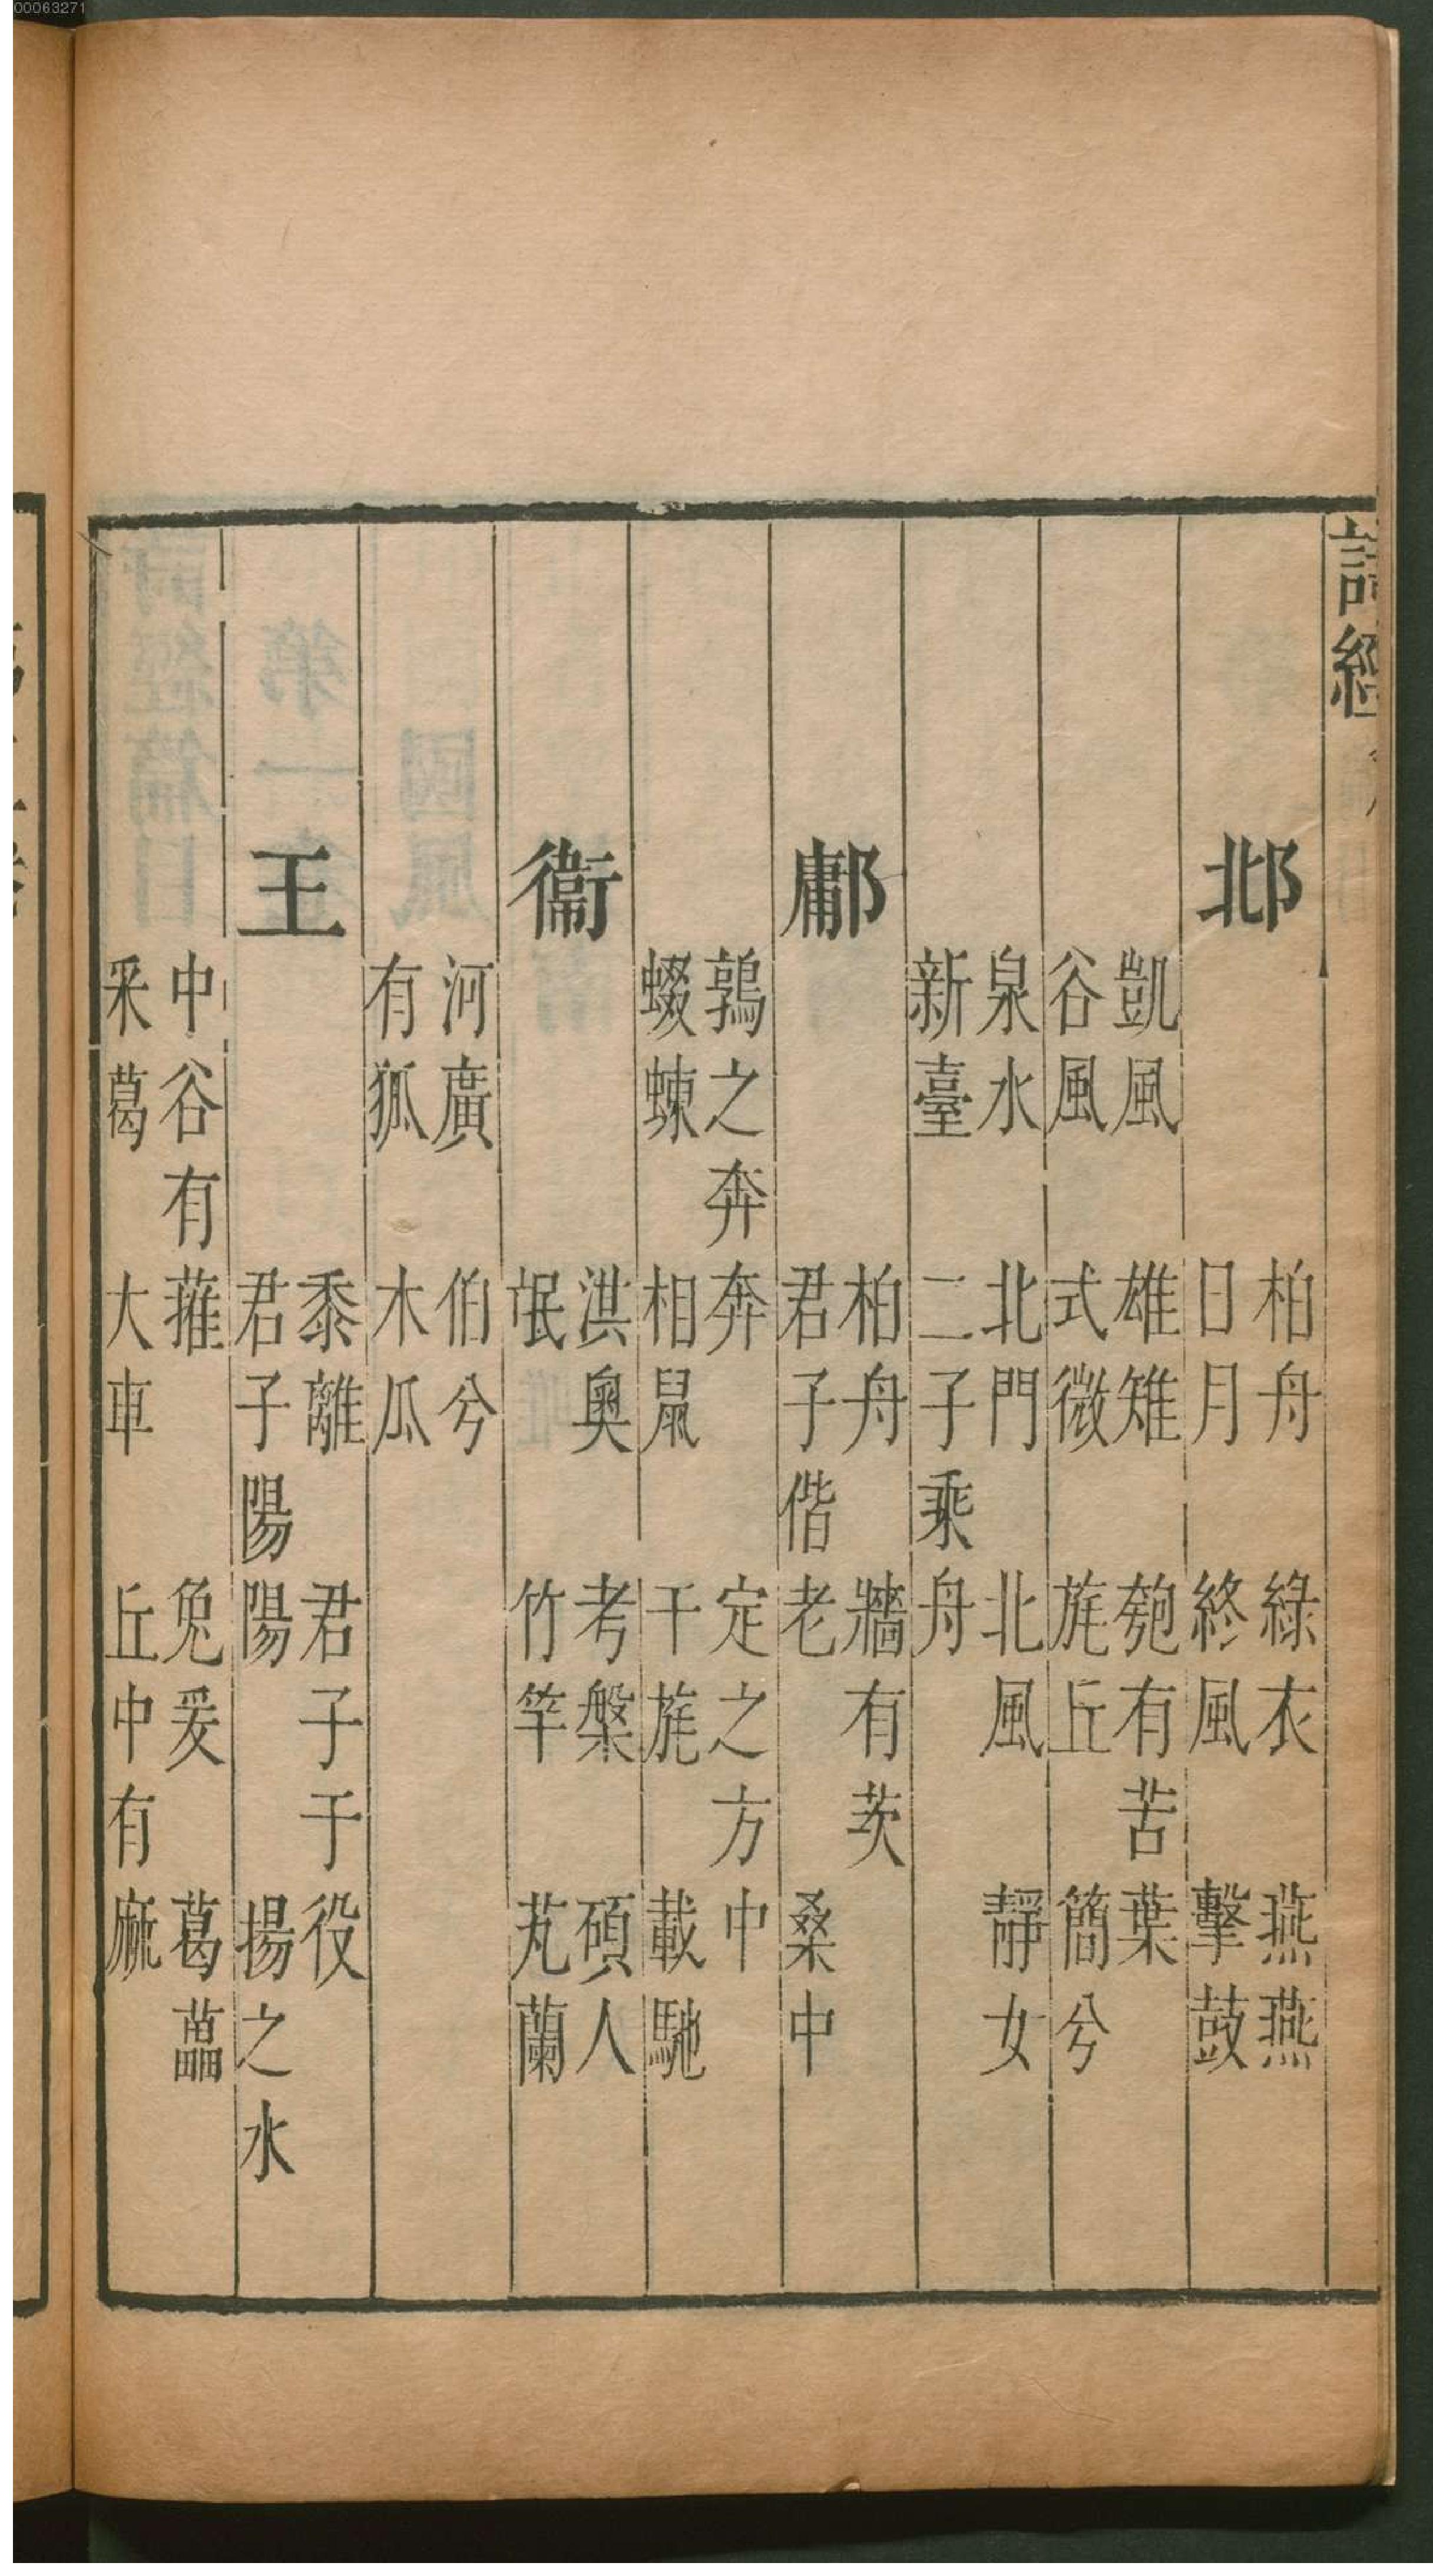 00063271
詩經
邶
柏舟 綠衣 燕燕
日月 終風 擊鼓
凱風 雄雉 匏有苦葉
谷風 式微 旄丘 簡兮
泉水 北門 北風 靜女
新臺 二子乘舟
鄘
柏舟 牆有茨
君子偕老 桑中
鶉之奔奔 定之方中
蝃蝀 相鼠 干旄 載馳
衞
淇奧 考槃 碩人
氓 竹竿 芄蘭
河廣 伯兮
有狐 木瓜
王
黍離 君子于役
君子陽陽 揚之水
中谷有蓷 兔爰 葛藟
采葛 大車 丘中有麻